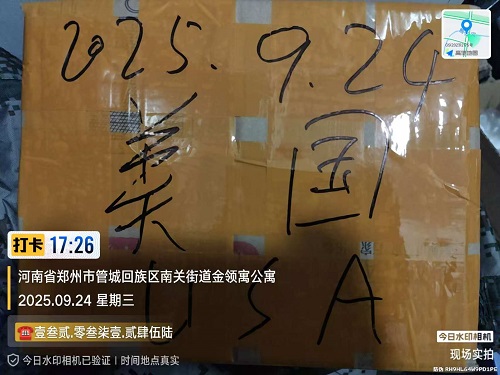 2025.9.24
美国
USA
打卡 17:26
河南省郑州市管城回族区南关街道金领寓公寓
2025.09.24 星期三
☎壹叁贰.零叁柒壹.贰肆伍陆
今日水印相机已验证 | 时间地点真实
今日水印相机
现场实拍